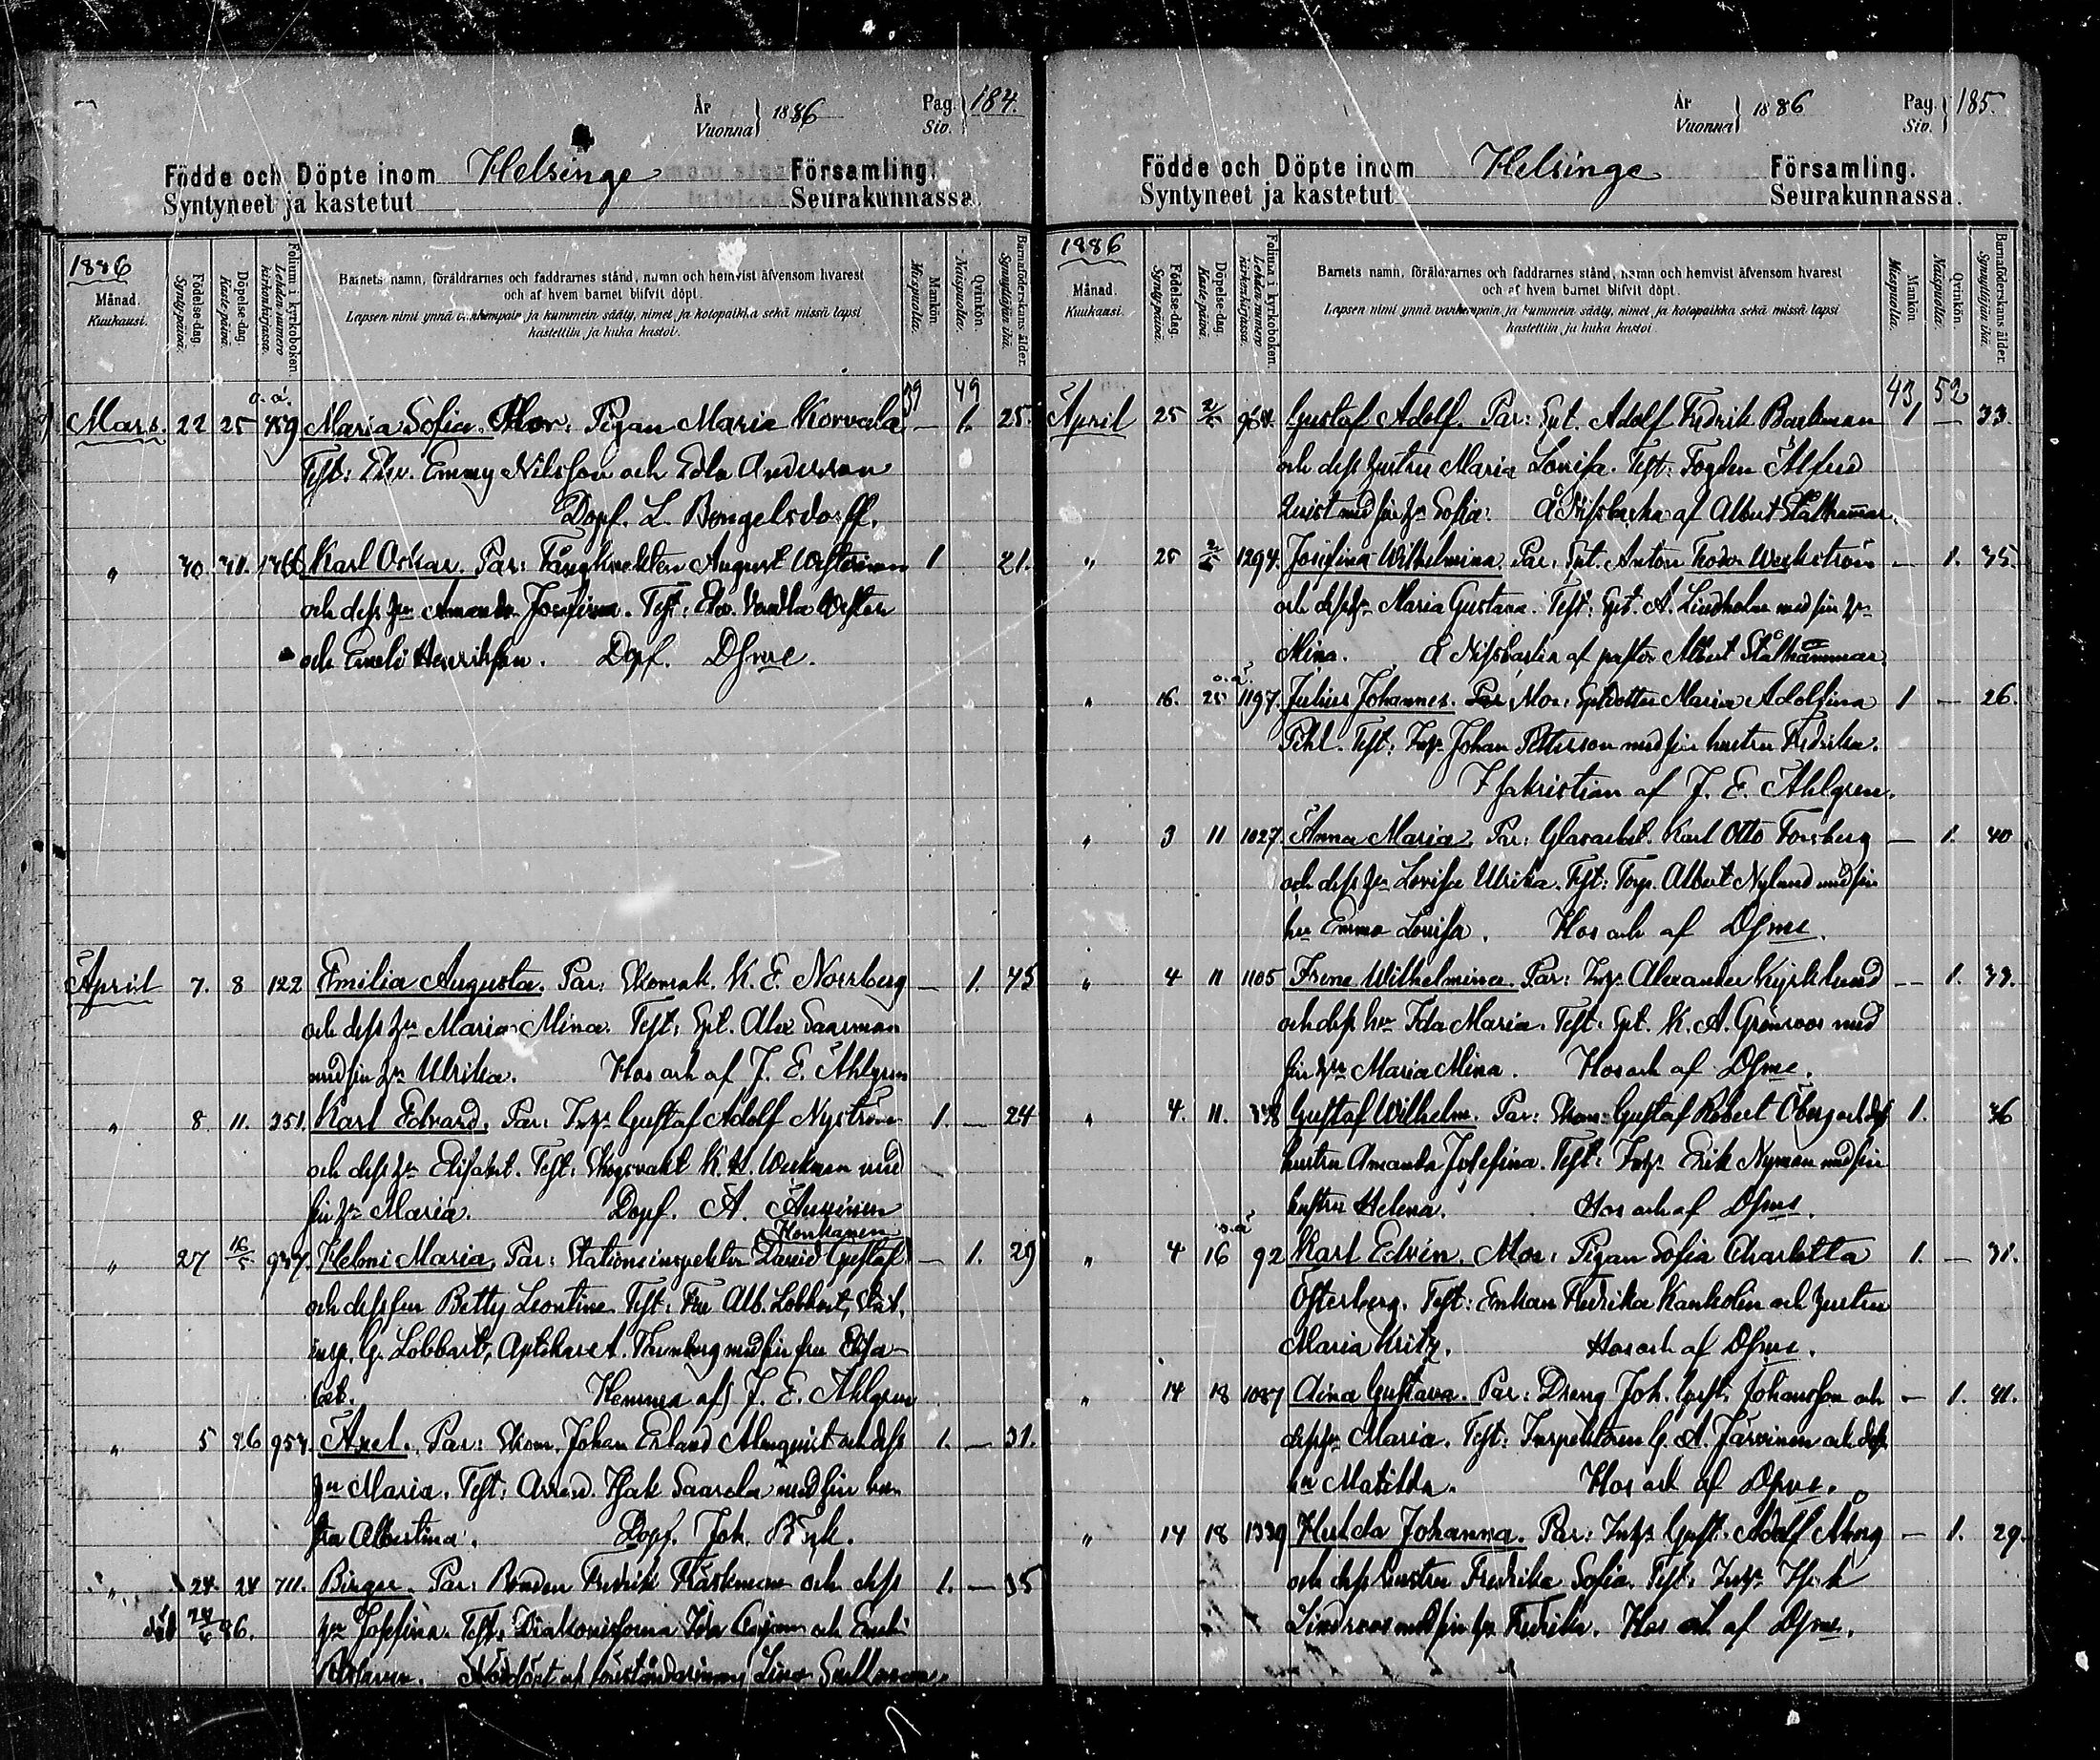 År
Vuonna } 1886
Pag.
Siv. } 184.
Födde och Döpte inom Helsinge Församling.
Syntyneet ja kastetut Seurakunnassa.
1886
Månad.
Kuukausi.
Födelse-dag.
Syntypäivä.
Döpelse-dag.
Kaste-päivä.
Folium i kyrkoboken.
Lehden numero kirkonkirjassa.
Barnets namn, föräldrarnes och faddrarnes stånd, namn och hemvist äfvensom hvarest
och af hvem barnet blifvit döpt.
Lapsen nimi ynnä vanhempain ja kummein sääty, nimet ja kotopaikka sekä missä lapsi
kastettiin ja kuka kastoi.
Mankön.
Miespuolia.
Qvinkön.
Naispuolia.
Barnaföderskans ålder.
Synnyttäjän ikä.
o. ä. 39 49
Mars. 22 25 459 Maria Sofia. Mor: Pigan Maria Korvala — 1. 25.
Test: Elev. Emmy Nilsson och Edla Andersson
Dopf. L. Bengelsdorff.
" 30. 31. 1366 Karl Oskar. Par: Fångknekten August Westerman 1 21.
och dess hu Amanda Josefina. Test: Elev. Vendla Westen
och Emeli Henriksson. Dopf. Dsme.
April 7. 8 122 Emilia Augusta. Par: Skomak. K. E. Norrberg — 1. 45
och dess hu Maria Mina. Test: Spt. Alex Saarman
med sin hu Ulrika. Hos och af J. E. Ahlgren
" 8 11. 251. Karl Edvard. Par: Inhs Gustaf Adolf Nyström 1. — 24
och dess hu Elisabet. Test: Skogsvakt K. H. Weckman med
sin hu Maria. Dopf. A. Aurinen
Honkanen
" 27 16/5 937. Helmi Maria, Par: Stationsinspektor David Gustaf — 1. 29
och dess fru Betty Leontine. Test: Fru Alb. Lobbert, Stat.
insp. G. Lobbart, Aptekare A. Thunberg med sin fru Elisa-
bet. Hemma af J. E. Ahlgren
" 5 26 954. Axel. Par: Skom. Johan Erland Almquist och dess 1. — 31.
hu Maria. Test: Arrend. Isak Saarela med sin hu
Albertina. Dopf. Joh. Bäck.
" 24. 24 711. Birger. Par: Bonden Fredrik Fläskman och dess 1. — 35
död 24/6 86. hu Josefina. Test: Diakonissorna Ida och Emeli
Nöddöpt af föreståndarinnan Lina Snellman.
År
Vuonna } 1886
Pag.
Siv. } 185.
Födde och Döpte inom Helsinge Församling.
Syntyneet ja kastetut Seurakunnassa.
1886
Månad.
Kuukausi.
Födelse-dag.
Syntypäivä.
Döpelse-dag.
Kaste-päivä.
Folium i kyrkoboken.
Lehden numero kirkonkirjassa.
Barnets namn, föräldrarnes och faddrarnes stånd, namn och hemvist äfvensom hvarest
och af hvem barnet blifvit döpt.
Lapsen nimi ynnä vanhempain ja kummein sääty, nimet ja kotopaikka sekä missä lapsi
kastettiin ja kuka kastoi.
Mankön.
Miespuolia.
Qvinkön.
Naispuolia.
Barnaföderskans ålder.
Synnyttäjän ikä.
43 52
April 25 2/5 964. Gustaf Adolf. Par: Spt. Adolf Fredrik Backman 1 — 33.
och dess hustru Maria Lovisa. Test: Fogden Alfred
Quist med sin hu Sofia. Å Nissbacka af Albert Stålhammar.
" 25 2/5 1294. Josefina Wilhelmina. Par: Spt. Anton Teodor Weckström — 1. 35.
och dess hu Maria Gustava. Test: Spt. A. Lindholm med sin hu
Mina. Å Nissbacka af pastor Albert Stålhammar.
o. ä.
" 16. 25 1197. Julius Johannes. Par Mor: Sptdotter Maria Adolfina 1 — 26.
Pihl. Test: Inhs Johan Petterson med sin hustru Fredrika.
I sakristian af J. E. Ahlgren.
" 3 11 1027. Anna Maria. Par: Glasarbet. Karl Otto Forsberg — 1. 40
och dess hu Lovisa Ulrika. Test: Torp. Albert Nylund med sin
hu Emma Lovisa. Hos och af Dsme.
" 4 11 1105 Irene Wilhelmina. Par: Inhs Alexander Kyrklund — 1. 33.
och dess hu Ida Maria. Test: Spt. K. A. Grönroos med
sin hu Maria Mina. Hos och af Dsme.
" 4. 11. 348 Gustaf Wilhelm. Par: Skom: Gustaf Robert Öberg och dess 1. 36
hustru Amanda Josefina. Test: Inhs Erik Nyman med sin
hustru Helena. Hos och af Dsme.
o. ä
" 4 16 92 Karl Edvin. Mor: Pigan Sofia Charlotta 1. — 31.
Österberg. Test: Enkan Fredrika Kankolin och hustru
Maria Kritz. Hos och af Dsme.
" 14 18 1087 Aina Gustava. Par: Dreng Joh. Gust. Johansson och — 1. 41.
dess hu Maria. Test: Inspektoren G. A. Järvinen och dess
hu Matilda. Hos och af Dsme.
" 14 18 1339 Hulda Johanna. Par: Inhs Gust. Adolf Åberg — 1. 29.
och dess hustru Fredrika Sofia. Test: Inhs Isak
Lindroos med sin hu Fredrika. Hos och af Dsme.